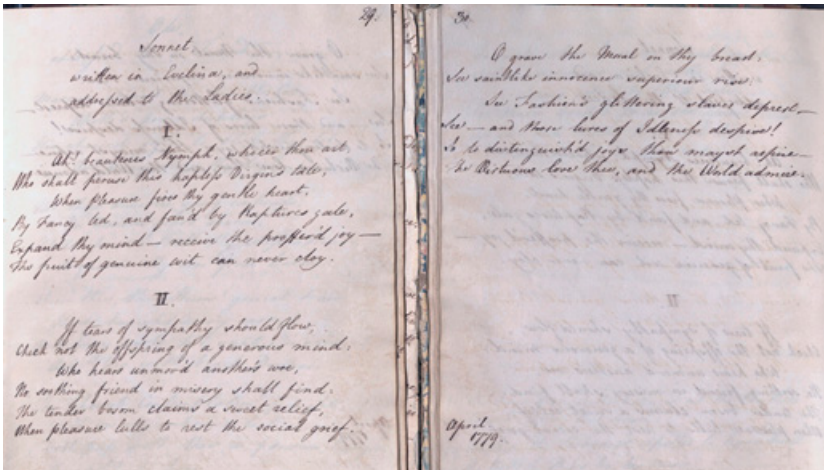 29.
Sonnet.
written in Evelina, and
addressed to the Ladies.
I.
Ah! beauteous Nymph, whoe'er thou art,
Who shall peruse this hapless Virgin's tale,
When pleasure fires thy gentle heart,
By Fancy led, and fan'd by Raptures gale,
Expand thy mind — receive the proffer'd joy —
The fruit of genuine wit can never cloy.
II.
If tears of sympathy should flow,
Check not the offspring of a generous mind:
Who hears unmov'd another's woe,
No soothing friend in misery shall find.
The tender bosom claims a sweet relief,
When pleasure lulls to rest the social grief.
30.
O grave the Moral on thy breast.
See saintlike innocence superiour rise
See Fashion's glittering slaves deprest —
See — and those lures of Idleness despise!
So to distinguish'd joys thou mayst aspire —
The Virtuous love thee, and the World admire.
April
1779.